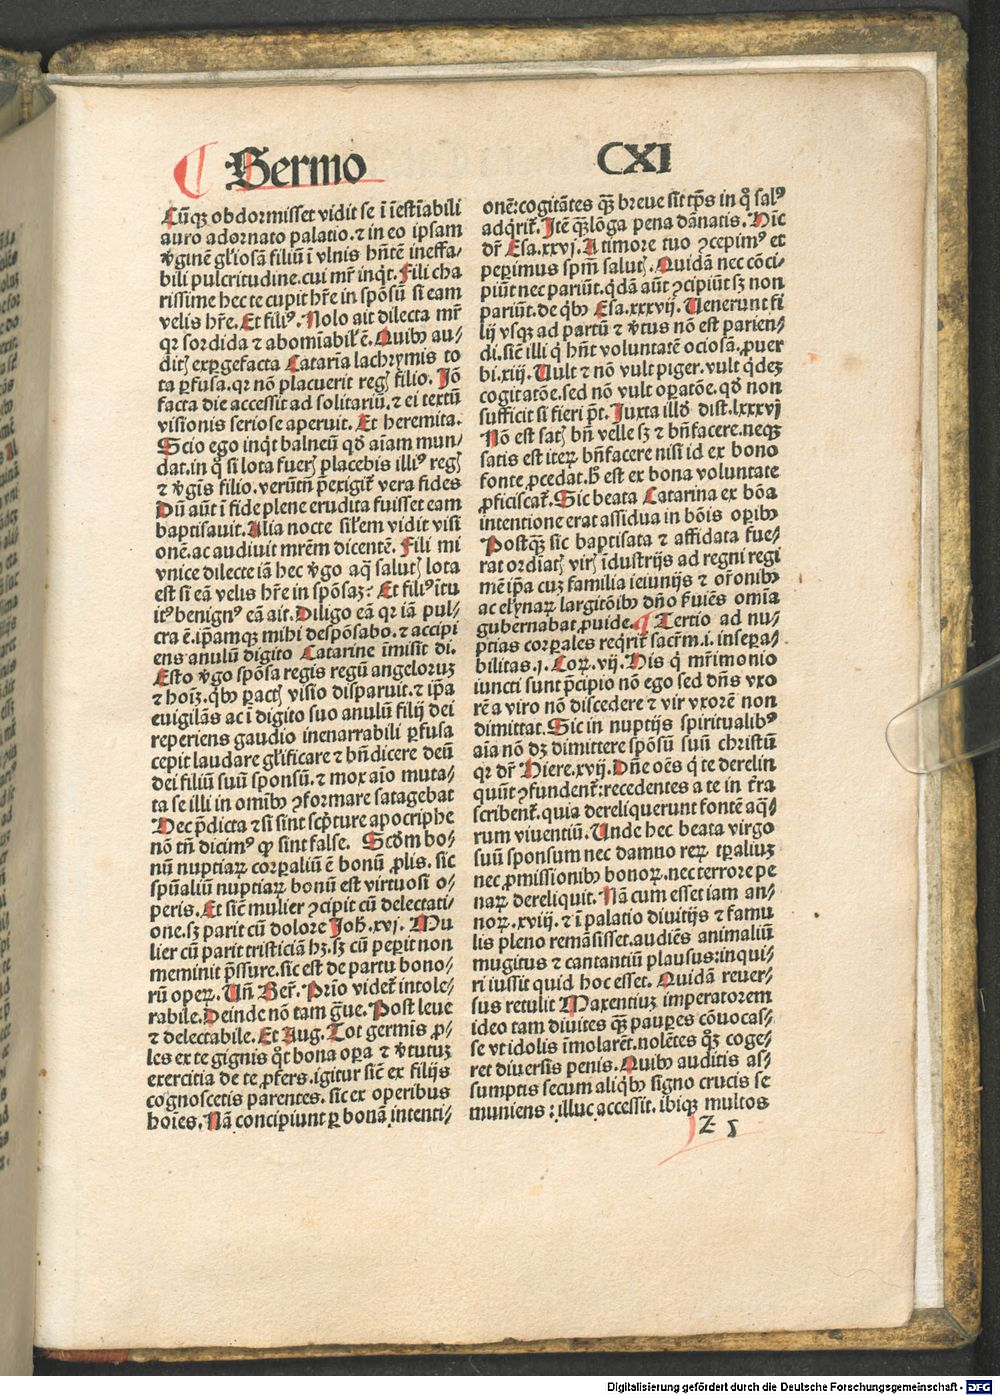 Sermo CXI
Cūqꝫ obdormisset vidit se ī īestīabili
auro adornato palatio. ⁊ in eo ipsam
v̄ginē gl̓iosā filiū ī vlnis hn̄tē ineffa-
bili pulcritudine. cui mr̄ inqͥt. Fili cha
rissime hec te cupit hr̄e in spōsū si eam
velis hr̄e. Et filiꝰ. Nolo ait dilecta mr̄
qꝛ sordida ⁊ abomīabil̓ ē. Quibꝰ au/
ditꝭ exꝑgefacta Catarīa lachrymis to
ta ꝑfusa. qꝛ nō placuerit regꝭ filio. Jō
facta die accessit ad solitariū. ⁊ ei textū
visionis seriose aperuit. Et heremita.
Scio ego inqͥt balneū qd̓ aīam mun/
dat. in qͦ si lota fuerꝭ placebis illiꝰ regꝭ
⁊ v̄gīs filio. verūtn̄ p̄exigit̄ vera fides
Dū aūt ī fide plene erudita fuisset eam
baptisauit. Alia nocte sil̓em vidit visi
onē. ac audiuit mr̄em dicentē. Fili mi
vnice dilecte iā hec v̄go aqͣ salutꝭ lota
est si eā velis hr̄e in spōsaꝫ? Et filiꝰ ītu
itꝰ benignꝰ eā ait. Diligo eā qꝛ iā pul/
cra ē. ip̄amqꝫ mihi despōsabo. ⁊ accipi
ens anulū digito Catarine īmisit di.
Esto v̄go spōsa regis regū angeloruꝫ
⁊ hoīꝫ. qͥbꝰ ꝑactꝭ visio disparuit. ⁊ ip̄a
euigilās ac ī digito suo anulū filij dei
reperiens gaudio inenarrabili ꝑfusa
cepit laudare gl̓ificare ⁊ bn̄dicere deū
dei filiū suū sponsū. ⁊ mox aīo muta/
ta se illi in omībꝰ ꝯformare satagebat
Hec p̄dicta ⁊ si sint scpͥture apocriphe
nō tn̄ dicimꝰ ꝙ sint false. Scd̓m bo/
nū nuptiaꝝ corꝑaliū ē bonū ꝓlis. sic
spūaliū nuptiaꝝ bonū est virtuosi o/
peris. Et sic̄ mulier ꝯcipit cū delectati/
one. sꝫ parit cū dolore Joh̄. xvj. Mu
lier cū parit tristiciā hꝫ. sꝫ cū peꝑit non
meminit p̄ssure. sic est de partu bono/
rū opeꝝ. Un̄ Ber̄. Prīo videt̄ intole/
rabile. Deinde nō tam gͣue. Post leue
⁊ delectabile. Et Aug. Tot germīs ꝓ/
les ex te gignis qͦt bona oꝑa ⁊ v̄tutuꝫ
exercitia de te ꝓfers. igitur sic̄ ex filijs
cognoscetis parentes. sic ex operibus
hoīes. Nā concipiunt ꝑ bonā intenti/
onē: cogitātes qꝫ breue sit tp̄s in qͦ salꝰ
adqͥrit̄. Jtē qꝫ lōga pena dānatis. Hīc
dr̄ Esa. xxvj. A timore tuo ꝯcepimꝰ et
peꝑimus spm̄ salutꝭ. Quidā nec cōci/
piūt nec pariūt. qͥdā aūt ꝯcipiūt sꝫ non
pariūt. de qͥbꝰ Esa. xxxvij. Uenerunt fi
lij vsqꝫ ad partū ⁊ v̄tus nō est parien/
di. sic̄ illi qͥ hn̄t voluntatē ociosā. ꝓuer
bi. xiij. Uult ⁊ nō vult piger. vult qͥdeꝫ
cogitatōe. sed nō vult oꝑatōe. qd̓ non
sufficit si fieri pōt. Juxta illd̓ dist. lxxxvj
Nō est satꝭ bn̄ velle sꝫ ⁊ bn̄facere. neqꝫ
satis est iteꝝ bn̄facere nisi id ex bono
fonte ꝓcedat. h̄ est ex bona voluntate
ꝓficiscat̄. Sic beata Catarina ex bōa
intentione erat assidua in bōis oꝑibꝰ
Postqꝫ sic baptisata ⁊ affidata fue/
rat ordīatꝭ virꝭ īdustrijs ad regni regi
mē ip̄a cuꝫ familia ieiunijs ⁊ or̄onibꝰ
ac elynaꝝ largitōibꝰ dn̄o f̓uiēs omīa
gubernabat ꝓuide. ¶ Tertio ad nu/
ptias corꝑales reqͥrit̄ sacr̄m. i. inseꝑa/
bilitas. j. Coꝝ. vij. His qͥ mr̄imonio
iuncti sunt p̄cipio nō ego sed dn̄s vxo
rē a viro nō discedere ⁊ vir vxorē non
dimittat. Sic in nuptijs spiritualibꝰ
aīa nō dꝫ dimittere spōsū suū christū
qꝛ dr̄ Hiere. xvij. Dn̄e oēs qͥ te derelin
quūt ꝯfundent̄: recedentes a te in t̄ra
scribent̄. quia dereliquerunt fontē aqͣ/
rum viuentiū. Unde hec beata virgo
suū sponsum nec damno reꝝ tꝑaliuꝫ
nec ꝓmissionibꝰ bonoꝝ. nec terrore pe
naꝝ dereliquit. Nā cum esset iam an/
noꝝ. xviij. ⁊ ī palatio diuitijs ⁊ famu
lis pleno remāsisset. audiēs animaliū
mugitus ⁊ cantantiū plausus: inqui/
ri iussit quid hoc esset. Quidā reuer/
sus retulit Maxentiuꝫ imperatorem
ideo tam diuites qꝫ pauꝑes cōuocas/
se vt idolis īmolarēt. nolētes qͦꝫ coge/
ret diuersis penis. Quibꝰ auditis as/
sumptis secum aliqͥbꝰ signo crucis se
muniens: illuc accessit. ibiqꝫ multos
Z 5
Digitalisierung gefördert durch die Deutsche Forschungsgemeinschaft - DFG